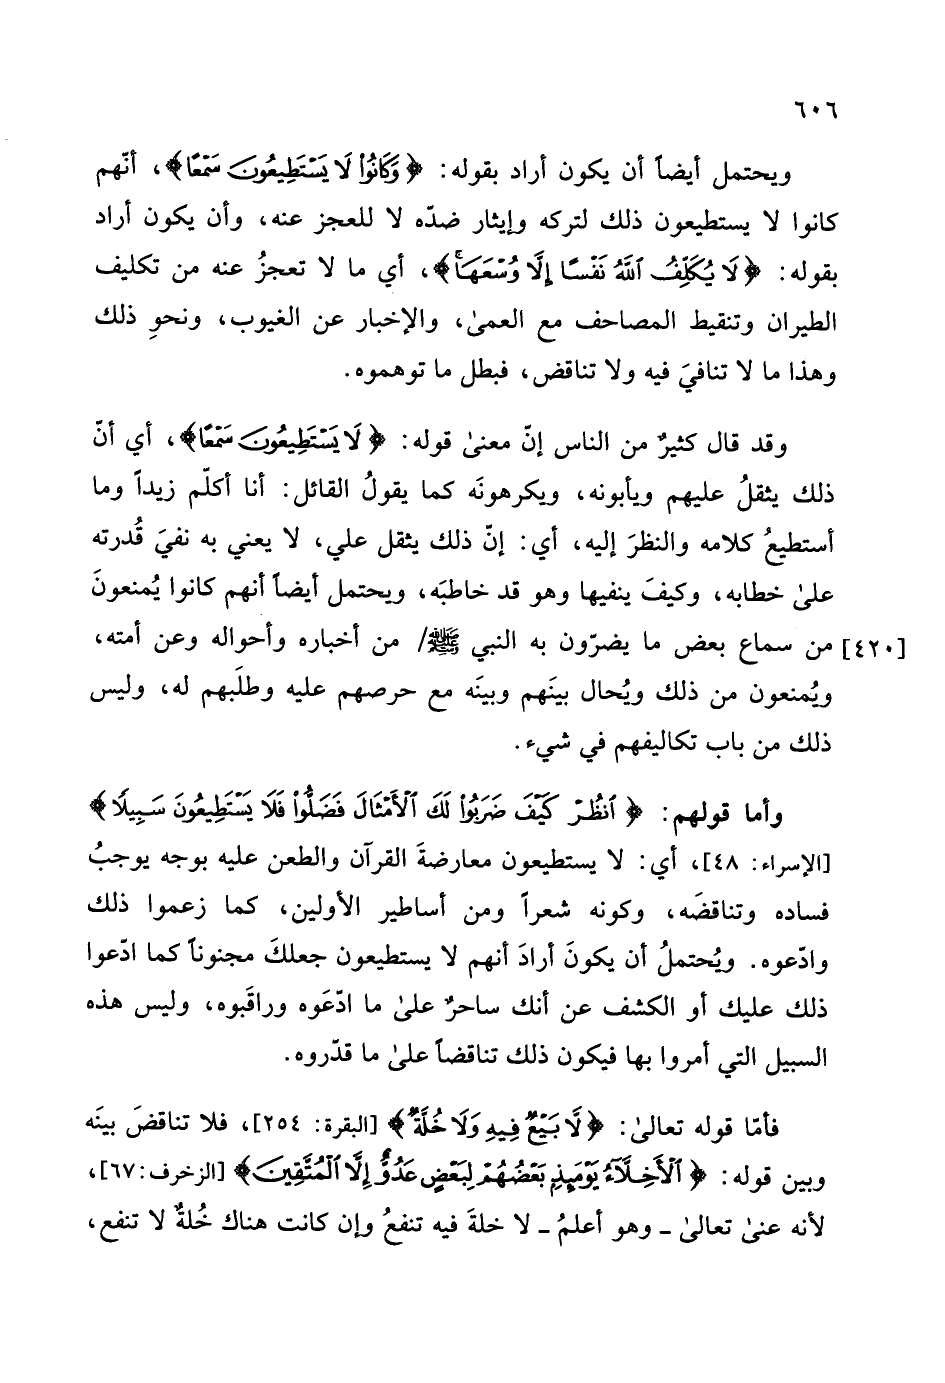 ٦٠٦
ويحتمل أيضاً أن يكون أراد بقوله: ﴿وَكَانُوا۟ لَا يَسْتَطِيعُونَ سَمْعًا﴾، أنّهم
كانوا لا يستطيعون ذلك لتركه وإيثار ضدّه لا للعجز عنه، وأن يكون أراد
بقوله: ﴿لَا يُكَلِّفُ ٱللَّهُ نَفْسًا إِلَّا وُسْعَهَا﴾، أي ما لا تعجزُ عنه من تكليف
الطيران وتنقيط المصاحف مع العمىٰ، والإخبار عن الغيوب، ونحوِ ذلك
وهذا ما لا تنافيَ فيه ولا تناقض، فبطل ما توهموه.
وقد قال كثيرٌ من الناس إنّ معنىٰ قوله: ﴿لَا يَسْتَطِيعُونَ سَمْعًا﴾، أي أنّ
ذلك يثقلُ عليهم ويأبونه، ويكرهونَه كما يقولُ القائل: أنا أكلّم زيداً وما
أستطيعُ كلامه والنظرَ إليه، أي: إنّ ذلك يثقل علي، لا يعني به نفيَ قُدرته
علىٰ خطابه، وكيفَ ينفيها وهو قد خاطبَه، ويحتمل أيضاً أنهم كانوا يُمنعونَ
[٤٢٠] من سماع بعض ما يضرّون به النبي ﷺ/ من أخباره وأحواله وعن أمته،
ويُمنعون من ذلك ويُحال بينَهم وبينَه مع حرصهم عليه وطلَبهم له، وليس
ذلك من باب تكاليفهم في شيء.
وأما قولهم: ﴿ٱنظُرْ كَيْفَ ضَرَبُوا۟ لَكَ ٱلْأَمْثَالَ فَضَلُّوا۟ فَلَا يَسْتَطِيعُونَ سَبِيلًا﴾
[الإسراء: ٤٨]، أي: لا يستطيعون معارضةَ القرآن والطعن عليه بوجه يوجبُ
فساده وتناقضَه، وكونه شعراً ومن أساطير الأولين، كما زعموا ذلك
وادّعوه. ويُحتملُ أن يكونَ أرادَ أنهم لا يستطيعون جعلكَ مجنوناً كما ادعوا
ذلك عليك أو الكشف عن أنك ساحرٌ علىٰ ما ادّعَوه وراقَبوه، وليس هذه
السبيل التي أمروا بها فيكون ذلك تناقضاً علىٰ ما قدّروه.
فأمّا قوله تعالىٰ: ﴿لَّا بَيْعٌ فِيهِ وَلَا خُلَّةٌ﴾ [البقرة: ٢٥٤]، فلا تناقضَ بينَه
وبين قوله: ﴿ٱلْأَخِلَّآءُ يَوْمَئِذٍۭ بَعْضُهُمْ لِبَعْضٍ عَدُوٌّ إِلَّا ٱلْمُتَّقِينَ﴾ [الزخرف:٦٧]،
لأنه عنىٰ تعالىٰ ـ وهو أعلمُ ـ لا خلةَ فيه تنفعُ وإن كانت هناك خُلةٌ لا تنفع،